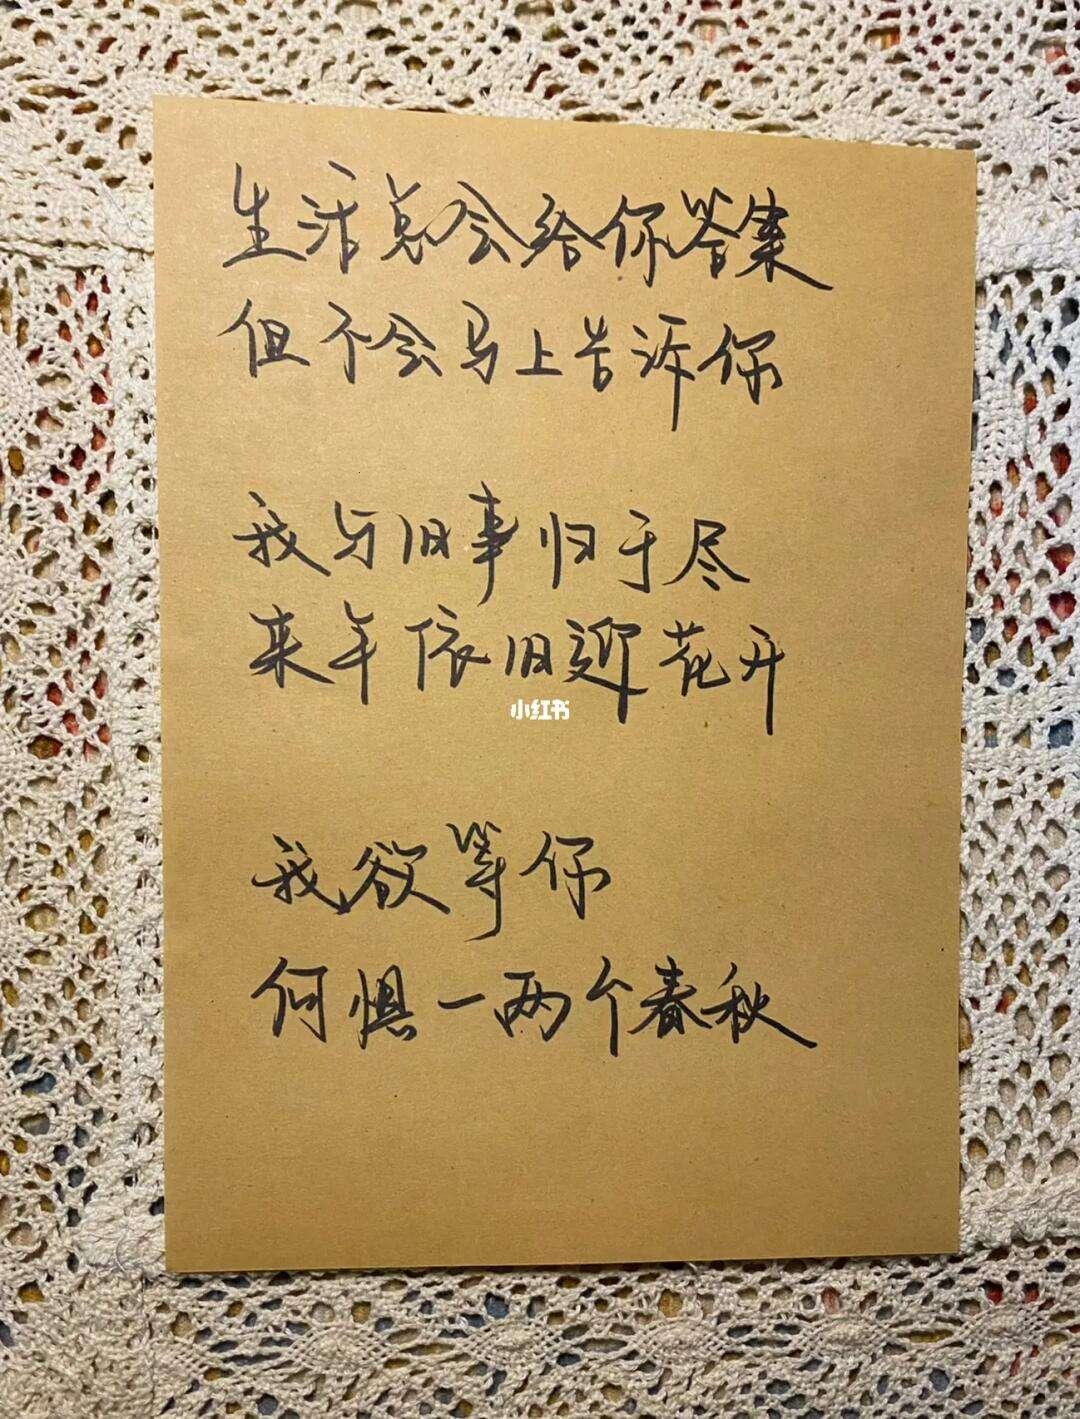 生活总会给你答案
但不会马上告诉你
我与旧事归于尽
来年依旧迎花开
小红书
我欲等你
何惧一两个春秋